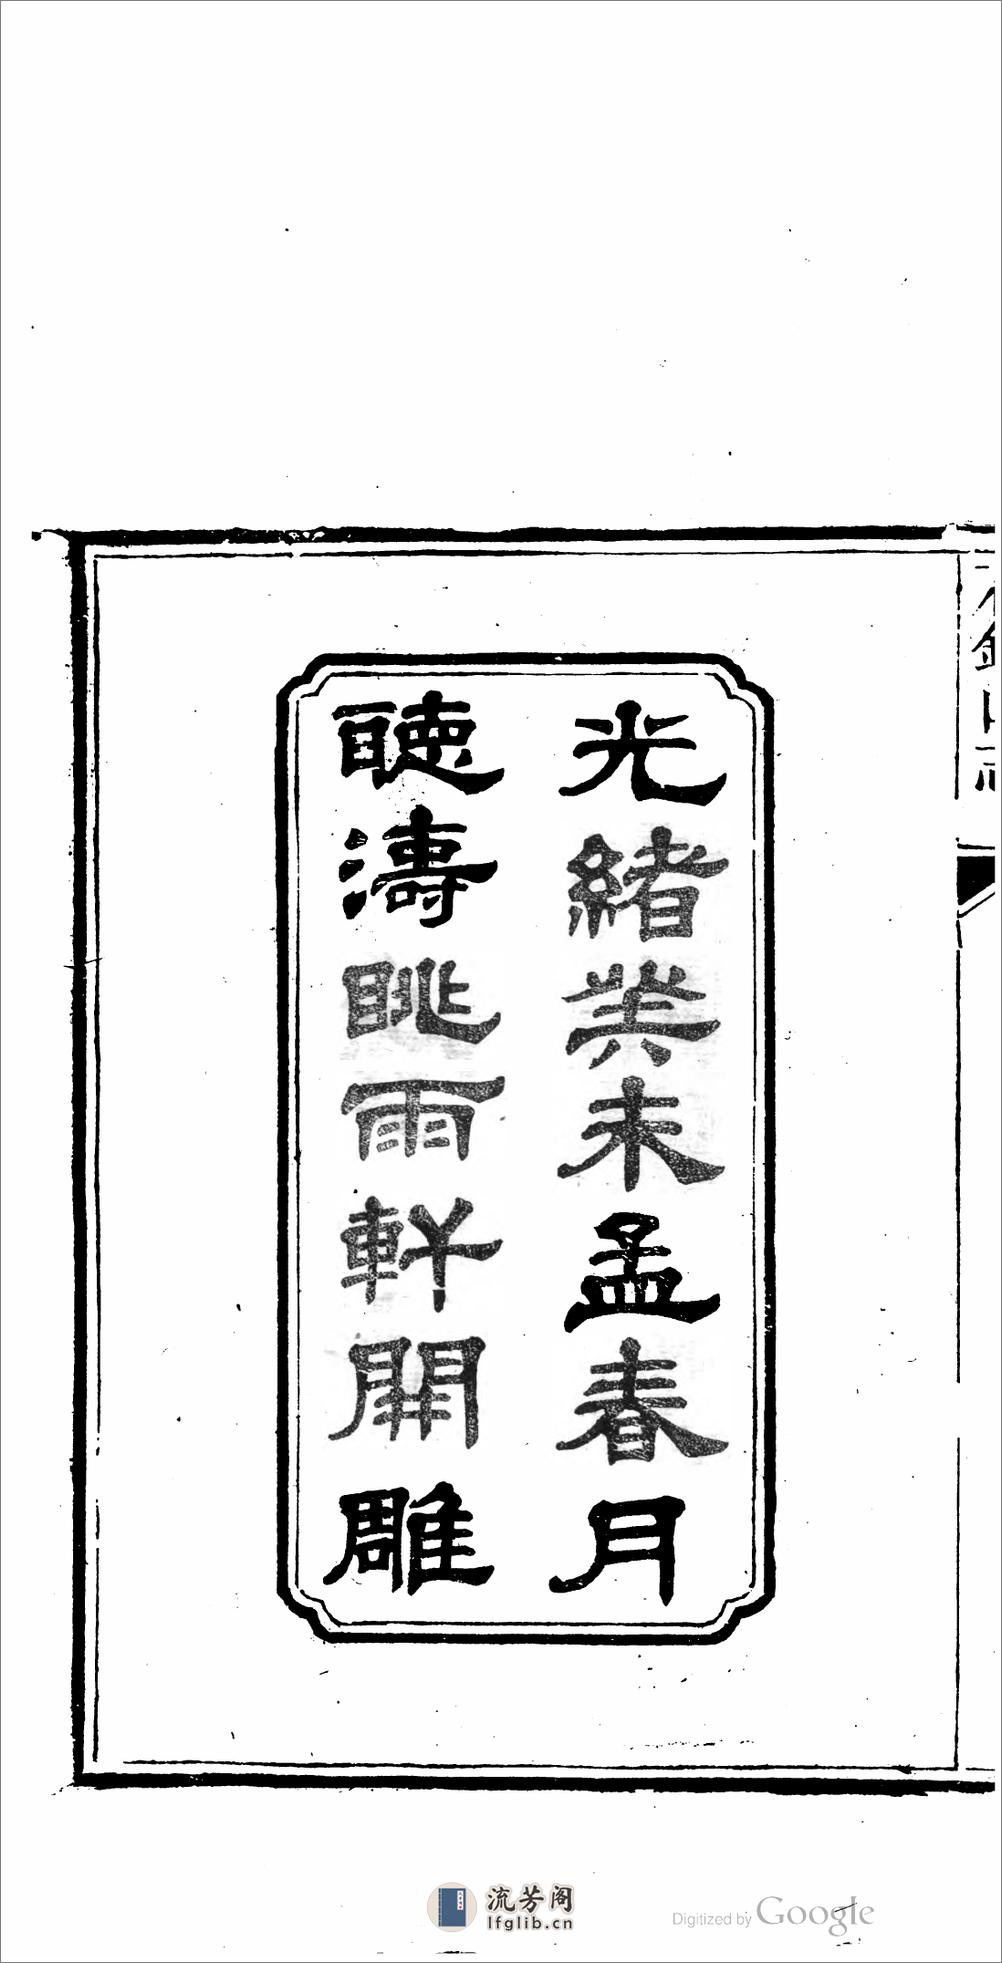 光緒癸未孟春月
聽濤眺雨軒開雕
流芳阁
lfglib.cn
Digitized by Google